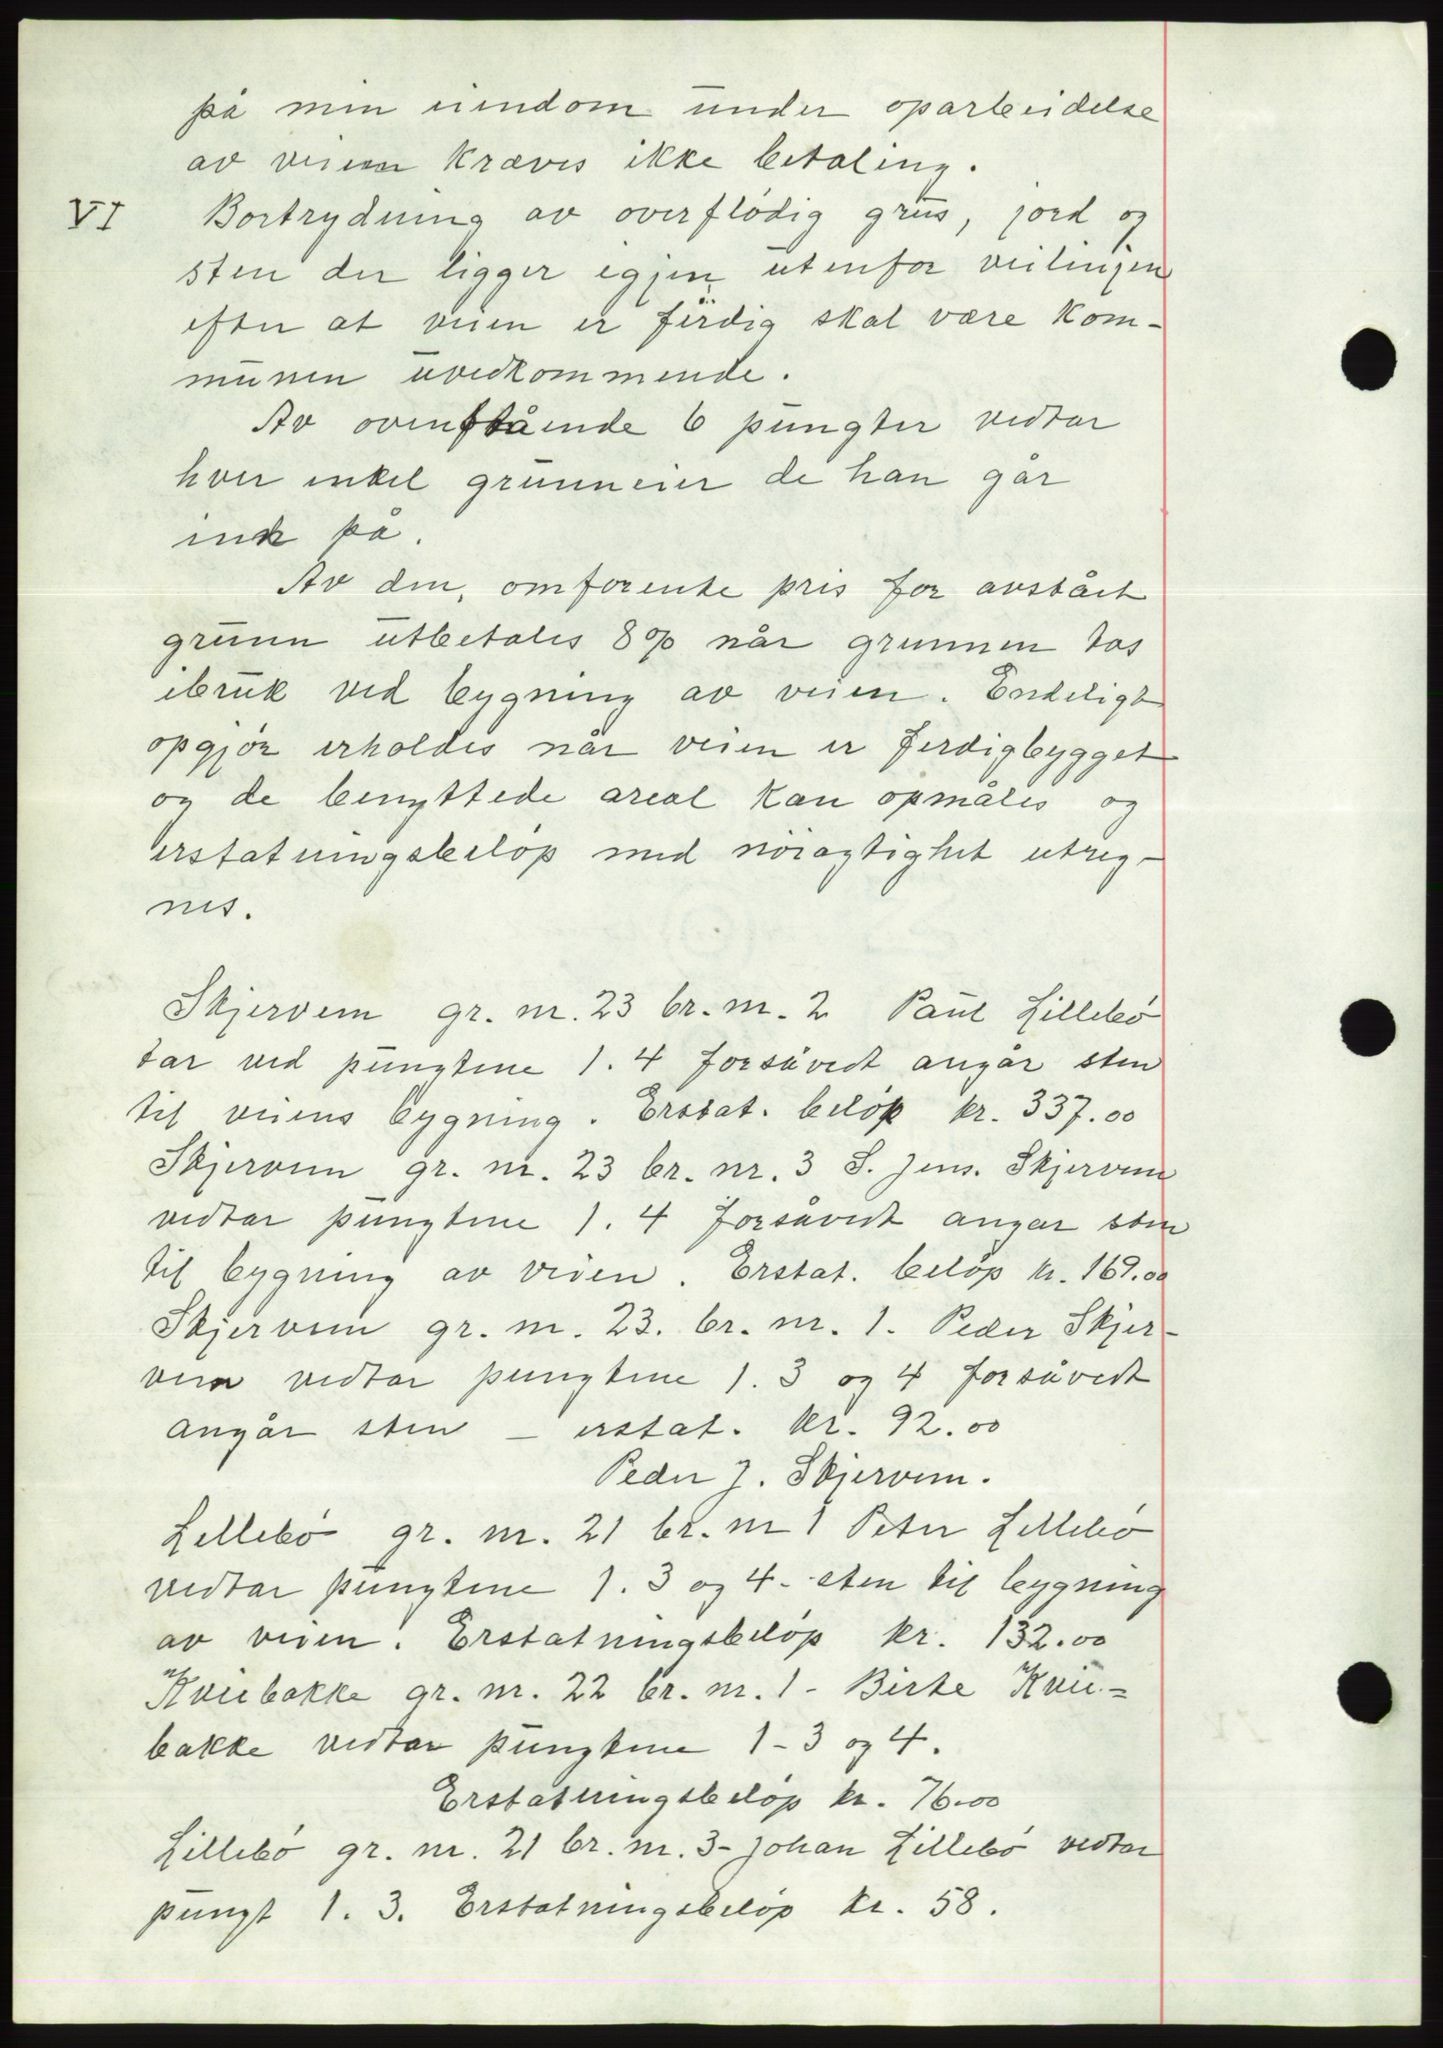 på min eiendom under oparbeidelse
av veien kræves ikke betaling.
VI Bortrydning av overflødig grus, jord og
sten der ligger igjen utenfor veilinjen
efter at veien er ferdig skal være kom-
munen uvedkommende.
Av ovenstående 6 pungter vedtar
hver enkel grunneier de han går
inn på.
Av den, omforente pris for avstået
grunn utbetales 8% når grunnen tas
ibruk ved bygning av veien. Endeligt
opgjør erholdes når veien er ferdigbygget
og de benyttede areal kan opmåles og
erstatningsbeløp med nøiagtighet utreg-
nes.
Skjervem gr. nr. 23 br. nr. 2 Paul Lillebø
tar ved pungtene 1. 4 forsåvedt angår sten
til veiens bygning. Erstat. beløp kr. 337.00
Skjervem gr. nr. 23 br. nr. 3 S. Jens. Skjervem
vedtar pungtene 1. 4 forsåvedt angar sten
til bygning av veien. Erstat. beløp kr. 169.00
Skjervem gr. nr. 23. br. nr. 1. Peder Skjer-
vem vedtar pungtene 1. 3 og 4 forsåvedt
angår sten - erstat. kr. 92.00
Peder J. Skjervem.
Lillebø gr. nr. 21 br. nr 1 Peter Lillebø
vedtar pungtene 1. 3 og 4 - sten til bygning
av veien. Erstatningsbeløp kr. 132.00
Kviebakke gr. nr. 22 br. nr. 1 - Birte Kvie-
bakke vedtar pungtene 1 - 3 og 4.
Erstatningsbeløp kr. 76.00
Lillebø gr. nr. 21 br. nr. 3 - Johan Lillebø vedtar
pungt 1. 3. Erstatningsbeløp kr. 58.